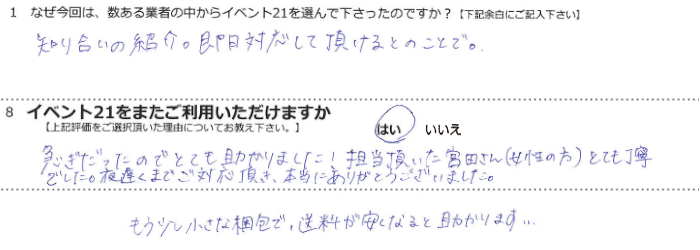 1 なぜ今回は、数ある業者の中からイベント21を選んで下さったのですか？【下記余白にご記入下さい】
知り合いの紹介。即日対応して頂けるとのことで。
8 イベント21をまたご利用いただけますか
【上記評価をご選択頂いた理由についてお教え下さい。】
はい いいえ
急ぎだったのでとても助かりました！担当頂いた宮田さん(女性の方)とても丁寧
でした。夜遅くまでご対応頂き、本当にありがとうございました。
もう少し小さな梱包で、送料が安くなると助かります…